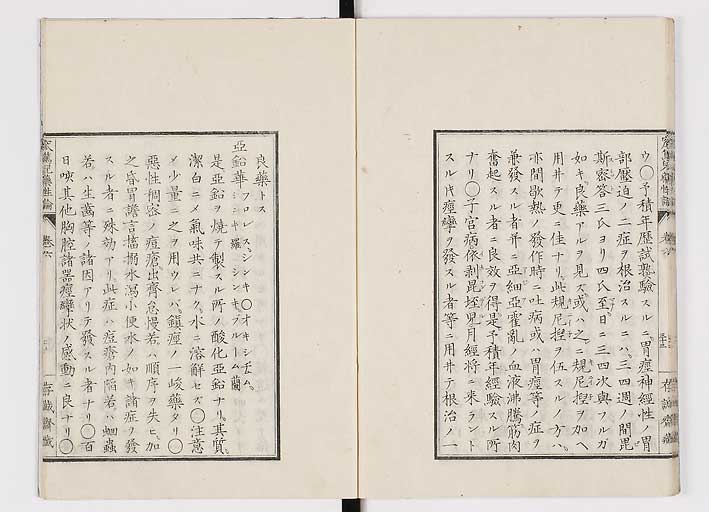 ウ〇予積年歴試熟驗スルニ胃痙神經性ノ胃
部壓迫ノ二症ヲ根治スルニハ三四週ノ間毘
斯密答三氏ヨリ四氏至日ニ三四次與フルガ
如キ良藥アルヲ見ズ或ハ之ニ規尼涅ヲ加ヘ
用井テ更ニ佳ナリ此規尼涅ヲ伍スルノ方ハ
亦間歇熱ノ發作時ニ吐病或ハ胃痙等ノ症ヲ
兼發スル者并ニ亞細亞霍亂ノ血液沸騰筋肉
奮起スル者ニ良效ヲ得是予積年經驗スル所
ナリ〇子宮病依剥昆垤兒月經將ニ来ラント
スル片痙攣ヲ發スル者等ニ用井テ根治ノ一
良藥トス
亞鉛華 フロレス、シンキ〇オキシデム、シンキ羅 シンキ、ブルーム蘭
是亞鉛ヲ燒テ製スル所ノ酸化亞鉛ナリ其質
潔白ニメ氣味共ニナク水ニ溶解セズ〇注意
メ少量ニ之ヲ用ウレバ鎮痙ノ一峻藥タリ〇
惡性稠容ノ痘瘡出齊怠慢若ハ順序ヲ失ヒ加
之昏冒譫言搐搦水瀉小便水ノ如キ諸症ヲ發
スル者ニ殊効アリ此症ハ痘瘡内陥若ハ蛔蟲
若ハ生齒等ノ諸因アリテ發スル者ナリ〇百
日咳其他胸腔諸器痙攣狀ノ感動ニ良ナリ〇